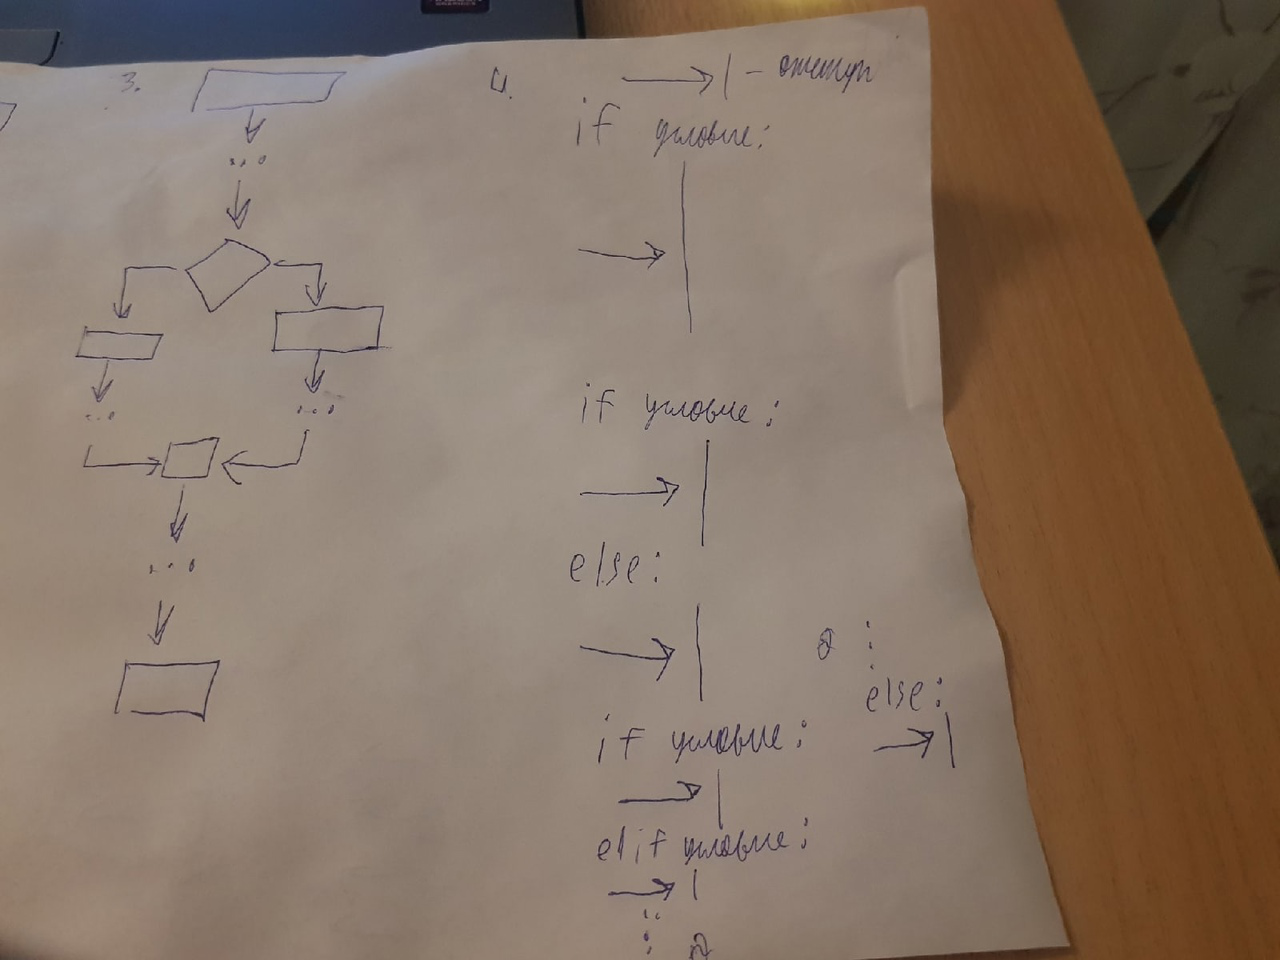 3.
4.
| - отступ
if условие:
if условие:
else:
if условие:
elif условие:
:
else: